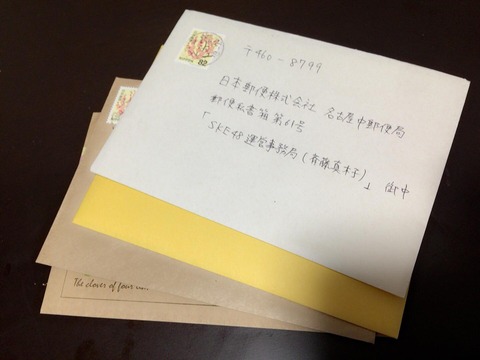 〒460-8799
日本郵便株式会社 名古屋中郵便局
郵便私書箱第61号
「SKE48運営事務局(斉藤真木子)」 御中
82
The clover of four